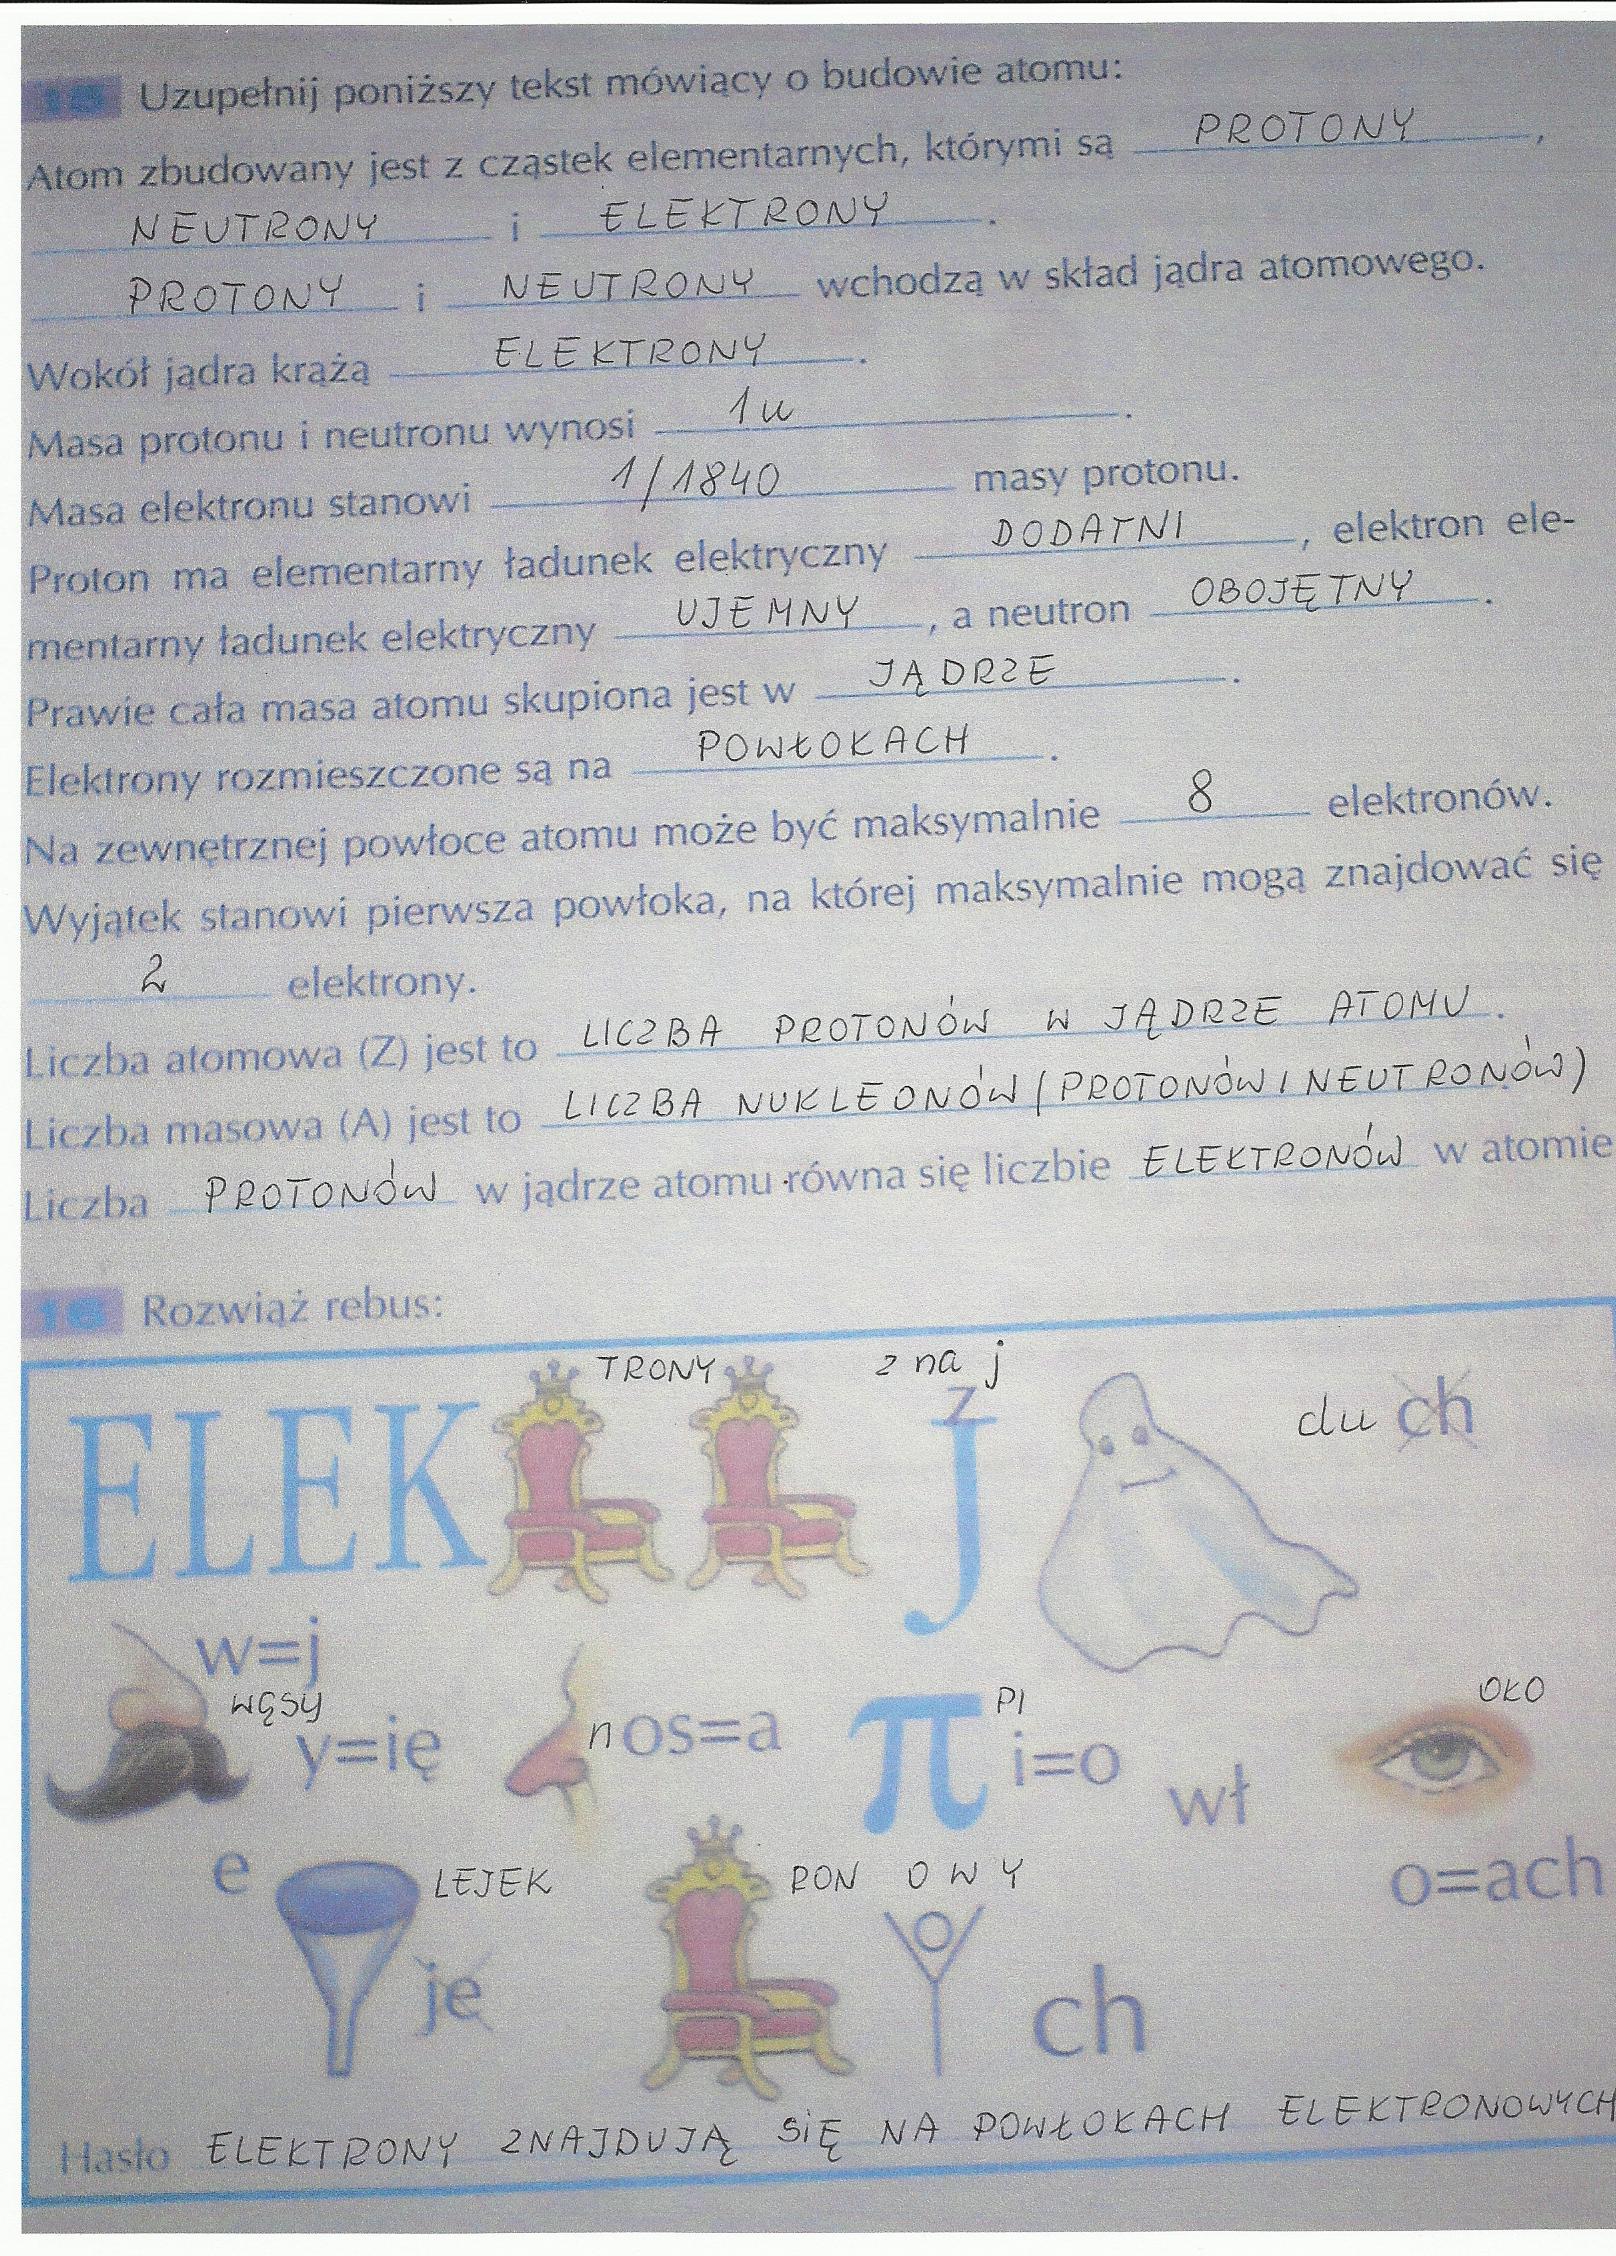 15 Uzupełnij poniższy tekst mówiący o budowie atomu:
Atom zbudowany jest z cząstek elementarnych, którymi są PROTONY,
NEUTRONY i ELEKTRONY.
PROTONY i NEUTRONY wchodzą w skład jądra atomowego.
Wokół jądra krążą ELEKTRONY.
Masa protonu i neutronu wynosi 1u.
Masa elektronu stanowi 1/1840 masy protonu.
Proton ma elementarny ładunek elektryczny DODATNI, elektron ele-
mentarny ładunek elektryczny UJEMNY, a neutron OBOJĘTNY.
Prawie cała masa atomu skupiona jest w JĄDRZE.
Elektrony rozmieszczone są na POWŁOKACH.
Na zewnętrznej powłoce atomu może być maksymalnie 8 elektronów.
Wyjątek stanowi pierwsza powłoka, na której maksymalnie mogą znajdować się
2 elektrony.
Liczba atomowa (Z) jest to LICZBA PROTONÓW W JĄDRZE ATOMU.
Liczba masowa (A) jest to LICZBA NUKLEONÓW (PROTONÓW I NEUTRONÓW)
Liczba PROTONÓW w jądrze atomu równa się liczbie ELEKTRONÓW w atomie
16 Rozwiąż rebus:
TRONY z na j
ELEK Z J du ch
w=j
WĄSY y=ię nos=a π PI i=o wł OKO
o=ach
e LEJEK je RON O W Y
ch
Hasło ELEKTRONY ZNAJDUJĄ SIĘ NA POWŁOKACH ELEKTRONOWYCH